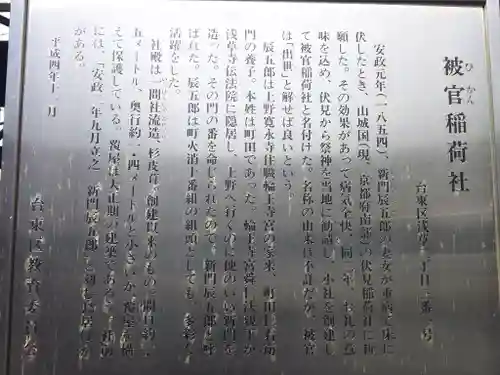 被官稲荷社
ひかん
台東区浅草二丁目三番一号
安政元年(一八五四)、新門辰五郎の妻女が重病で床に
伏したとき、山城国(現、京都府南部)の伏見稲荷社に祈
願した。その効果があって病気全快、同二年、お礼の意
味を込め、伏見から祭神を当地に勧請し、小社を創建し
て被官稲荷社と名付けた。名称の由来は不詳だが、被官
は「出世」と解せば良いという。
辰五郎は上野寛永寺住職輪王寺宮の家来、町田仁右衛
門の養子。本姓は町田であった。輪王寺宮舜仁法親王が
浅草寺伝法院に隠居し、上野へ行くのに便のいい新門を
造った。その門の番を命じられたので、新門辰五郎と呼
ばれた。辰五郎は町火消十番組の組頭としても、多彩な
活躍をした。
社殿は一間社流造、杉皮葺。創建以来のもの。間口約一・
五メートル、奥行約一・四メートルと小さいが、覆屋を構
えて保護している。覆屋は大正期の建築である。
には、「安政二年九月 新門辰五郎」と刻む鳥居
がある。
平成四年十一月
台東区教育委員会